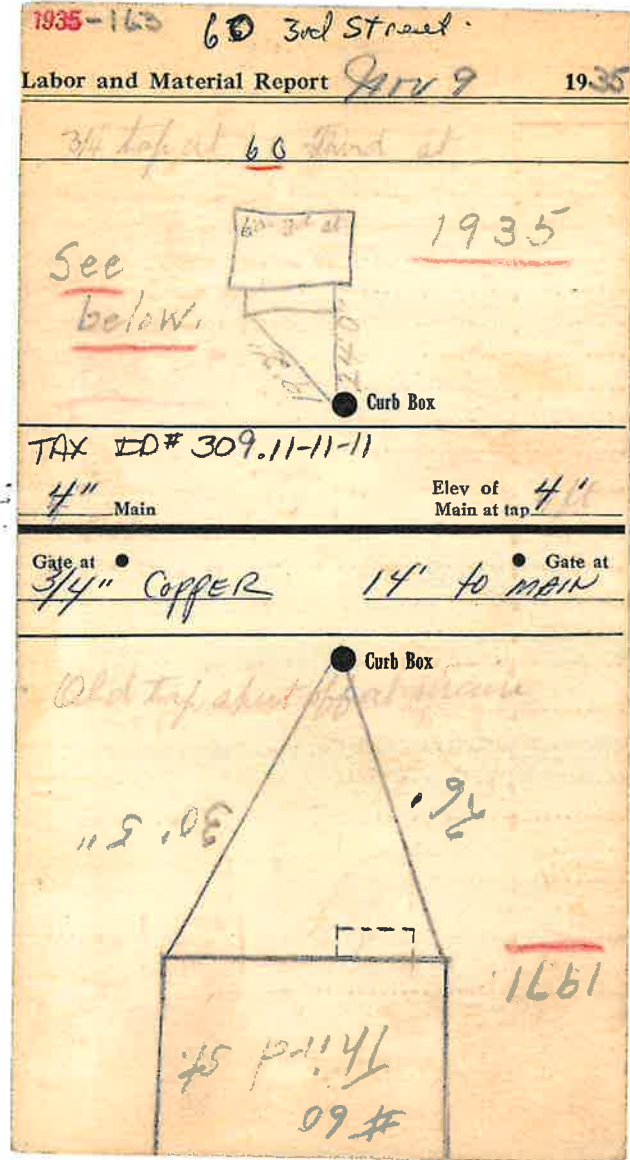 1935-163
60 3rd Street.
Labor and Material Report Nov 9 1935
3/4 tap at 60 Third st
60 3rd st
1935
See
below.
24.0'
Curb Box
TAX ID# 309.11-11-11
4" Main
Elev of
Main at tap 4'
Gate at
Gate at
3/4" COPPER 14' to MAIN
Curb Box
Old tap shut off at main
30' 5"
26'
1971
Third St.
# 60